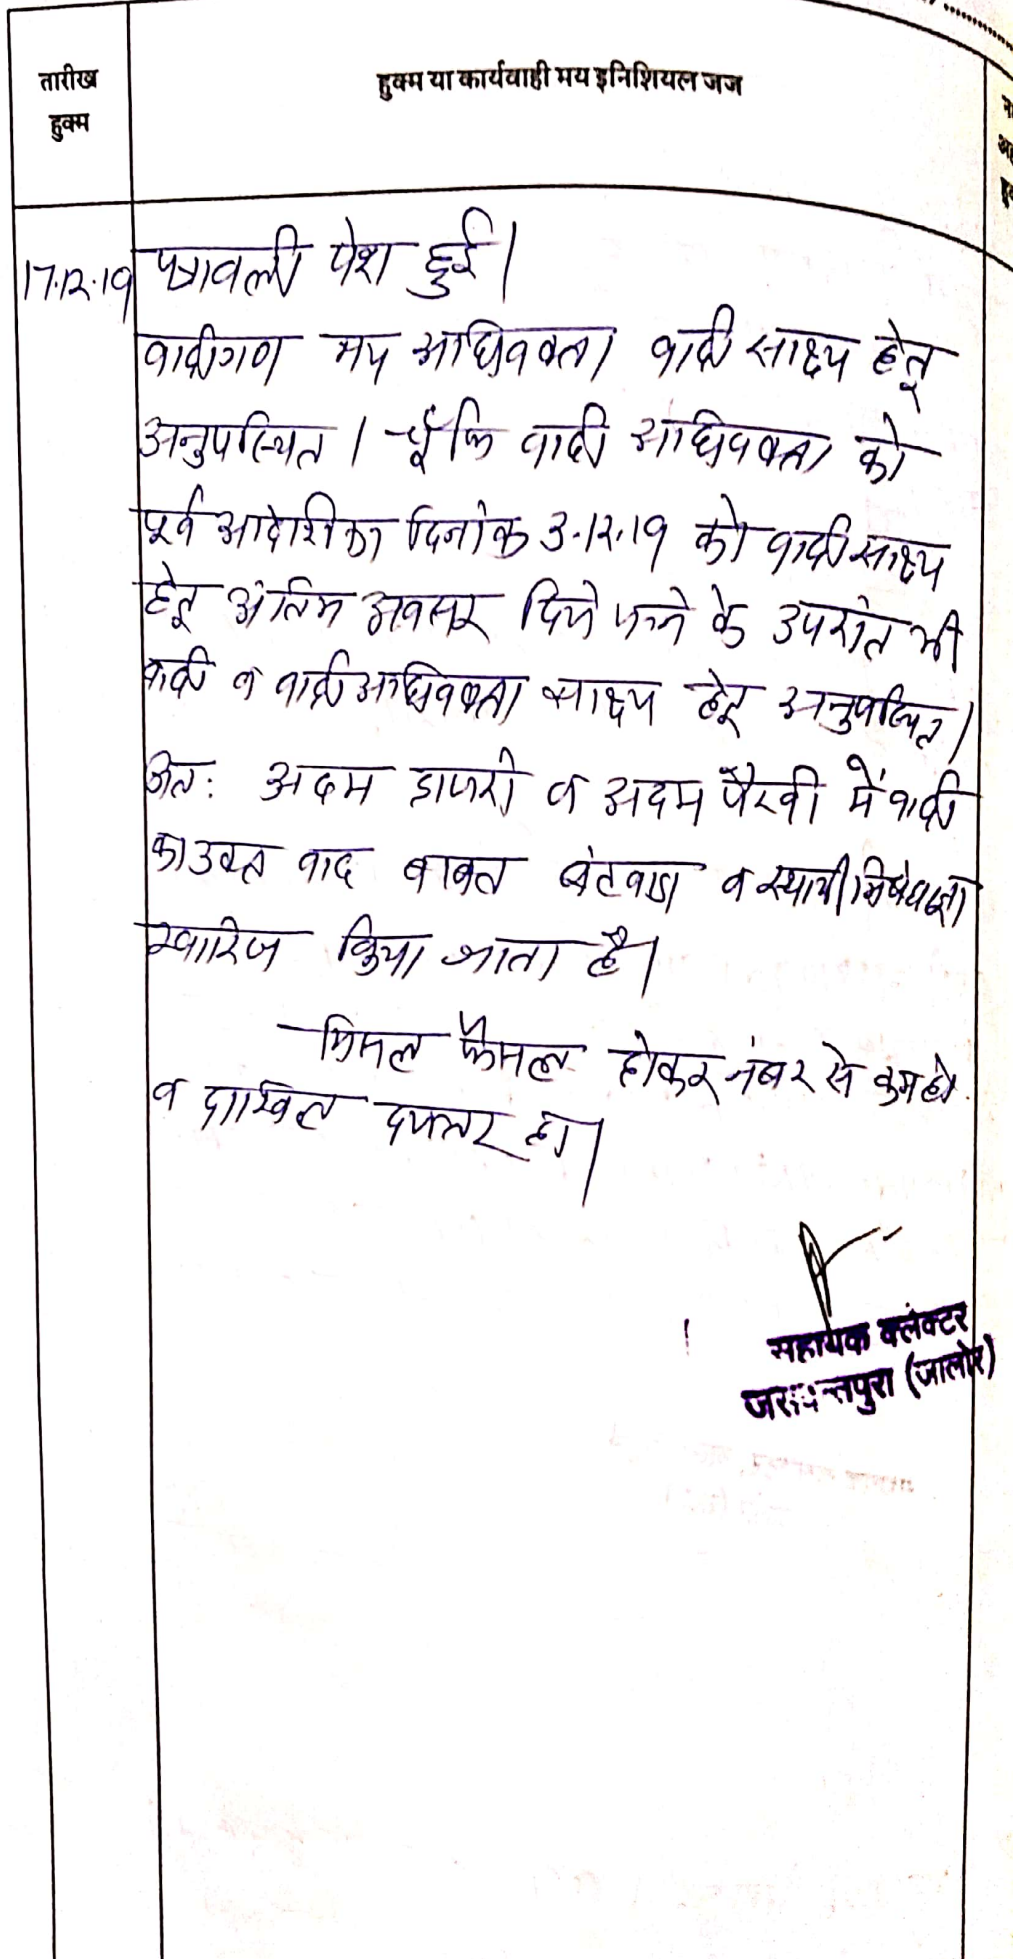 तारीख
हुक्म
हुक्म या कार्यवाही मय इनिशियल जज
17.12.19 पत्रावली पेश हुई।
वादीगण मय अधिवक्ता वादी साक्ष्य हेतू
अनुपस्थित। चूँकि वादी अधिवक्ता को
पूर्व आदेशिका दिनांक 3.12.19 को वादी साक्ष्य
हेतू अंतिम अवसर दिये जाने के उपरांत भी
वादी व वादी अधिवक्ता साक्ष्य हेतू अनुपस्थित।
अतः अदम हाजरी व अदम पैरवी में वादी
का उक्त वाद बाबत बंटवाडा व स्थायी निषेधाज्ञा
खारिज किया जाता है।
मिसल फैसल होकर नंबर से कम हो
व दाखिल दफ्तर हो।
सहायक क्लेक्टर
जसवन्तपुरा (जालोर)